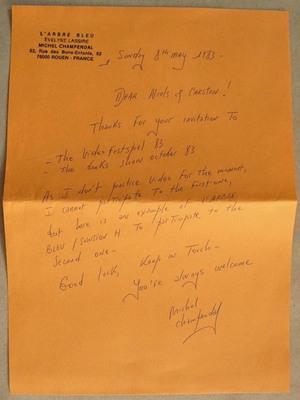 L'ARBRE BLEU
EVELYNE LASSIRE
MICHEL CHAMPENDAL
52, Rue des Bons-Enfants, 52
76000 ROUEN - FRANCE
Sunday 8th may 1983 -
DEAR Niels & CARSTEN!
Thanks For your invitation To
- The Video festspel 83
- The books show october 83
As I don't practise Video For the moment,
I cannot participate To the first-one,
but here is an example of L'ARBRE
BLEU / H To participate to the
Second one -
Good luck, Keep in Touch -
You're always welcome
Michel
Champendal